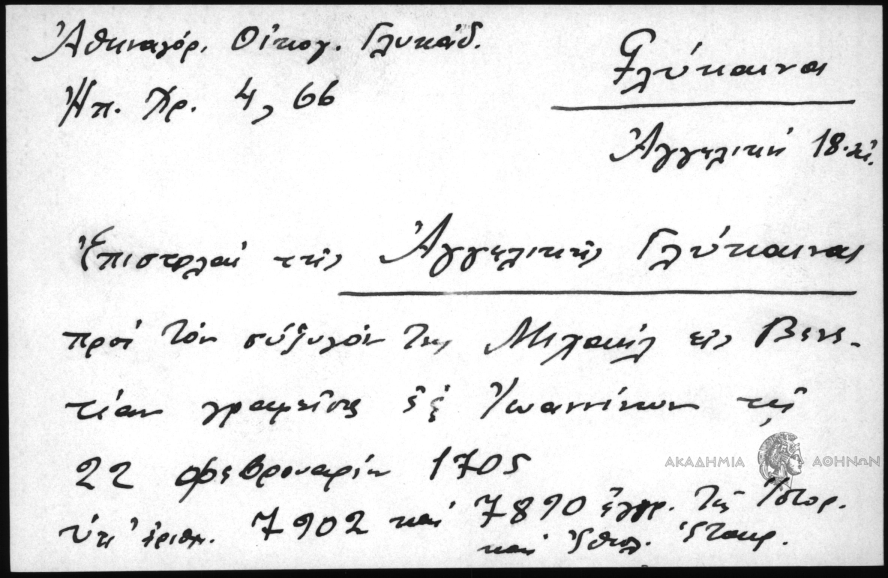 Ἀθηναγόρ. Οἰκογ. Γλυκάδ.
Ἠπ. Χρ. 4, 66
Γλύκαινας
Ἀγγελικὴ 18.
Ἐπιστολαὶ τῆς Ἀγγελικῆς Γλύκαινας
πρὸς τὸν σύζυγόν της Μιχαὴλ εἰς Βενε-
τίαν γραφεῖσαι ἐξ Ἰωαννίνων τῇ
22 Φεβρουαρίου 1705
ὑπ' ἀριθμ. 7902 καὶ 7890 ἔγγρ. τῆς Ἱστορ.
καὶ Ἐθνολ. Ἑταιρ.
ΑΚΑΔΗΜΙΑ ΑΘΗΝΩΝ